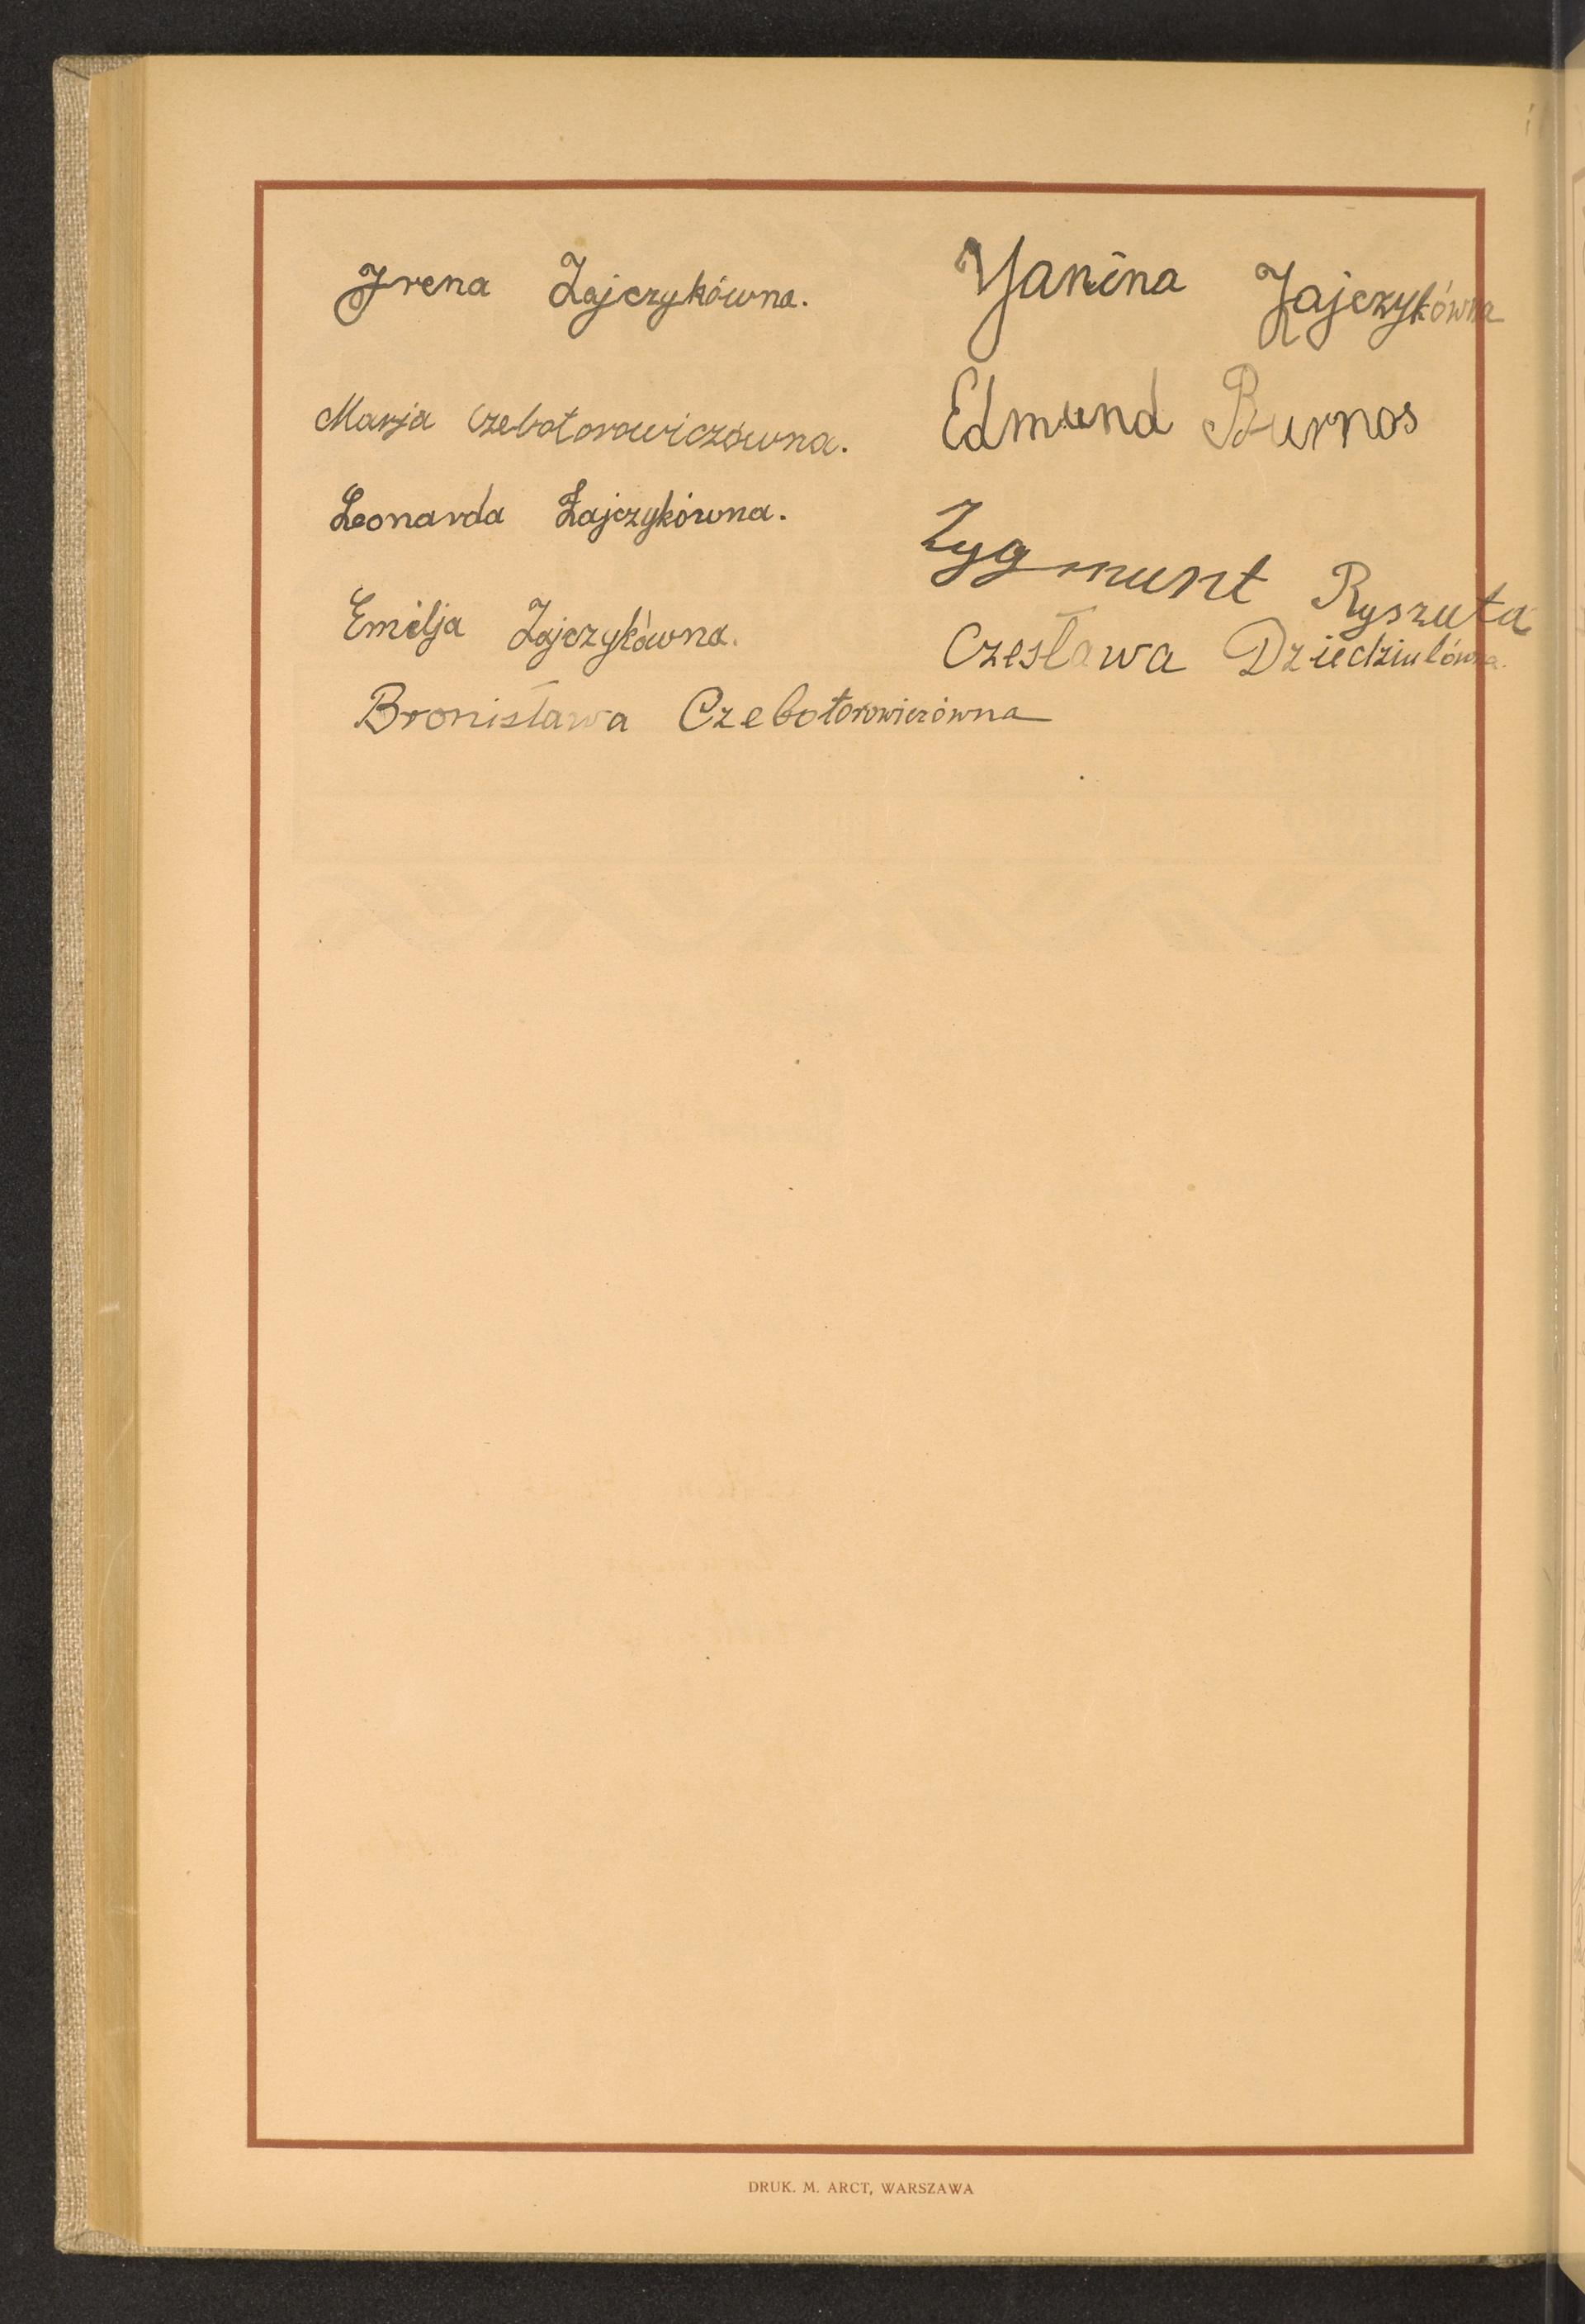 Irena Zajczykówna.
Marja Czebotorowiczówna.
Leonarda Zajczykówna.
Emilja Zajczykówna.
Bronisława Czebotorowiczówna
Janina Zajczykówna
Edmund Burnos
Zygmunt Ryszuta
Czesława Dziedziulówna.
DRUK. M. ARCT, WARSZAWA